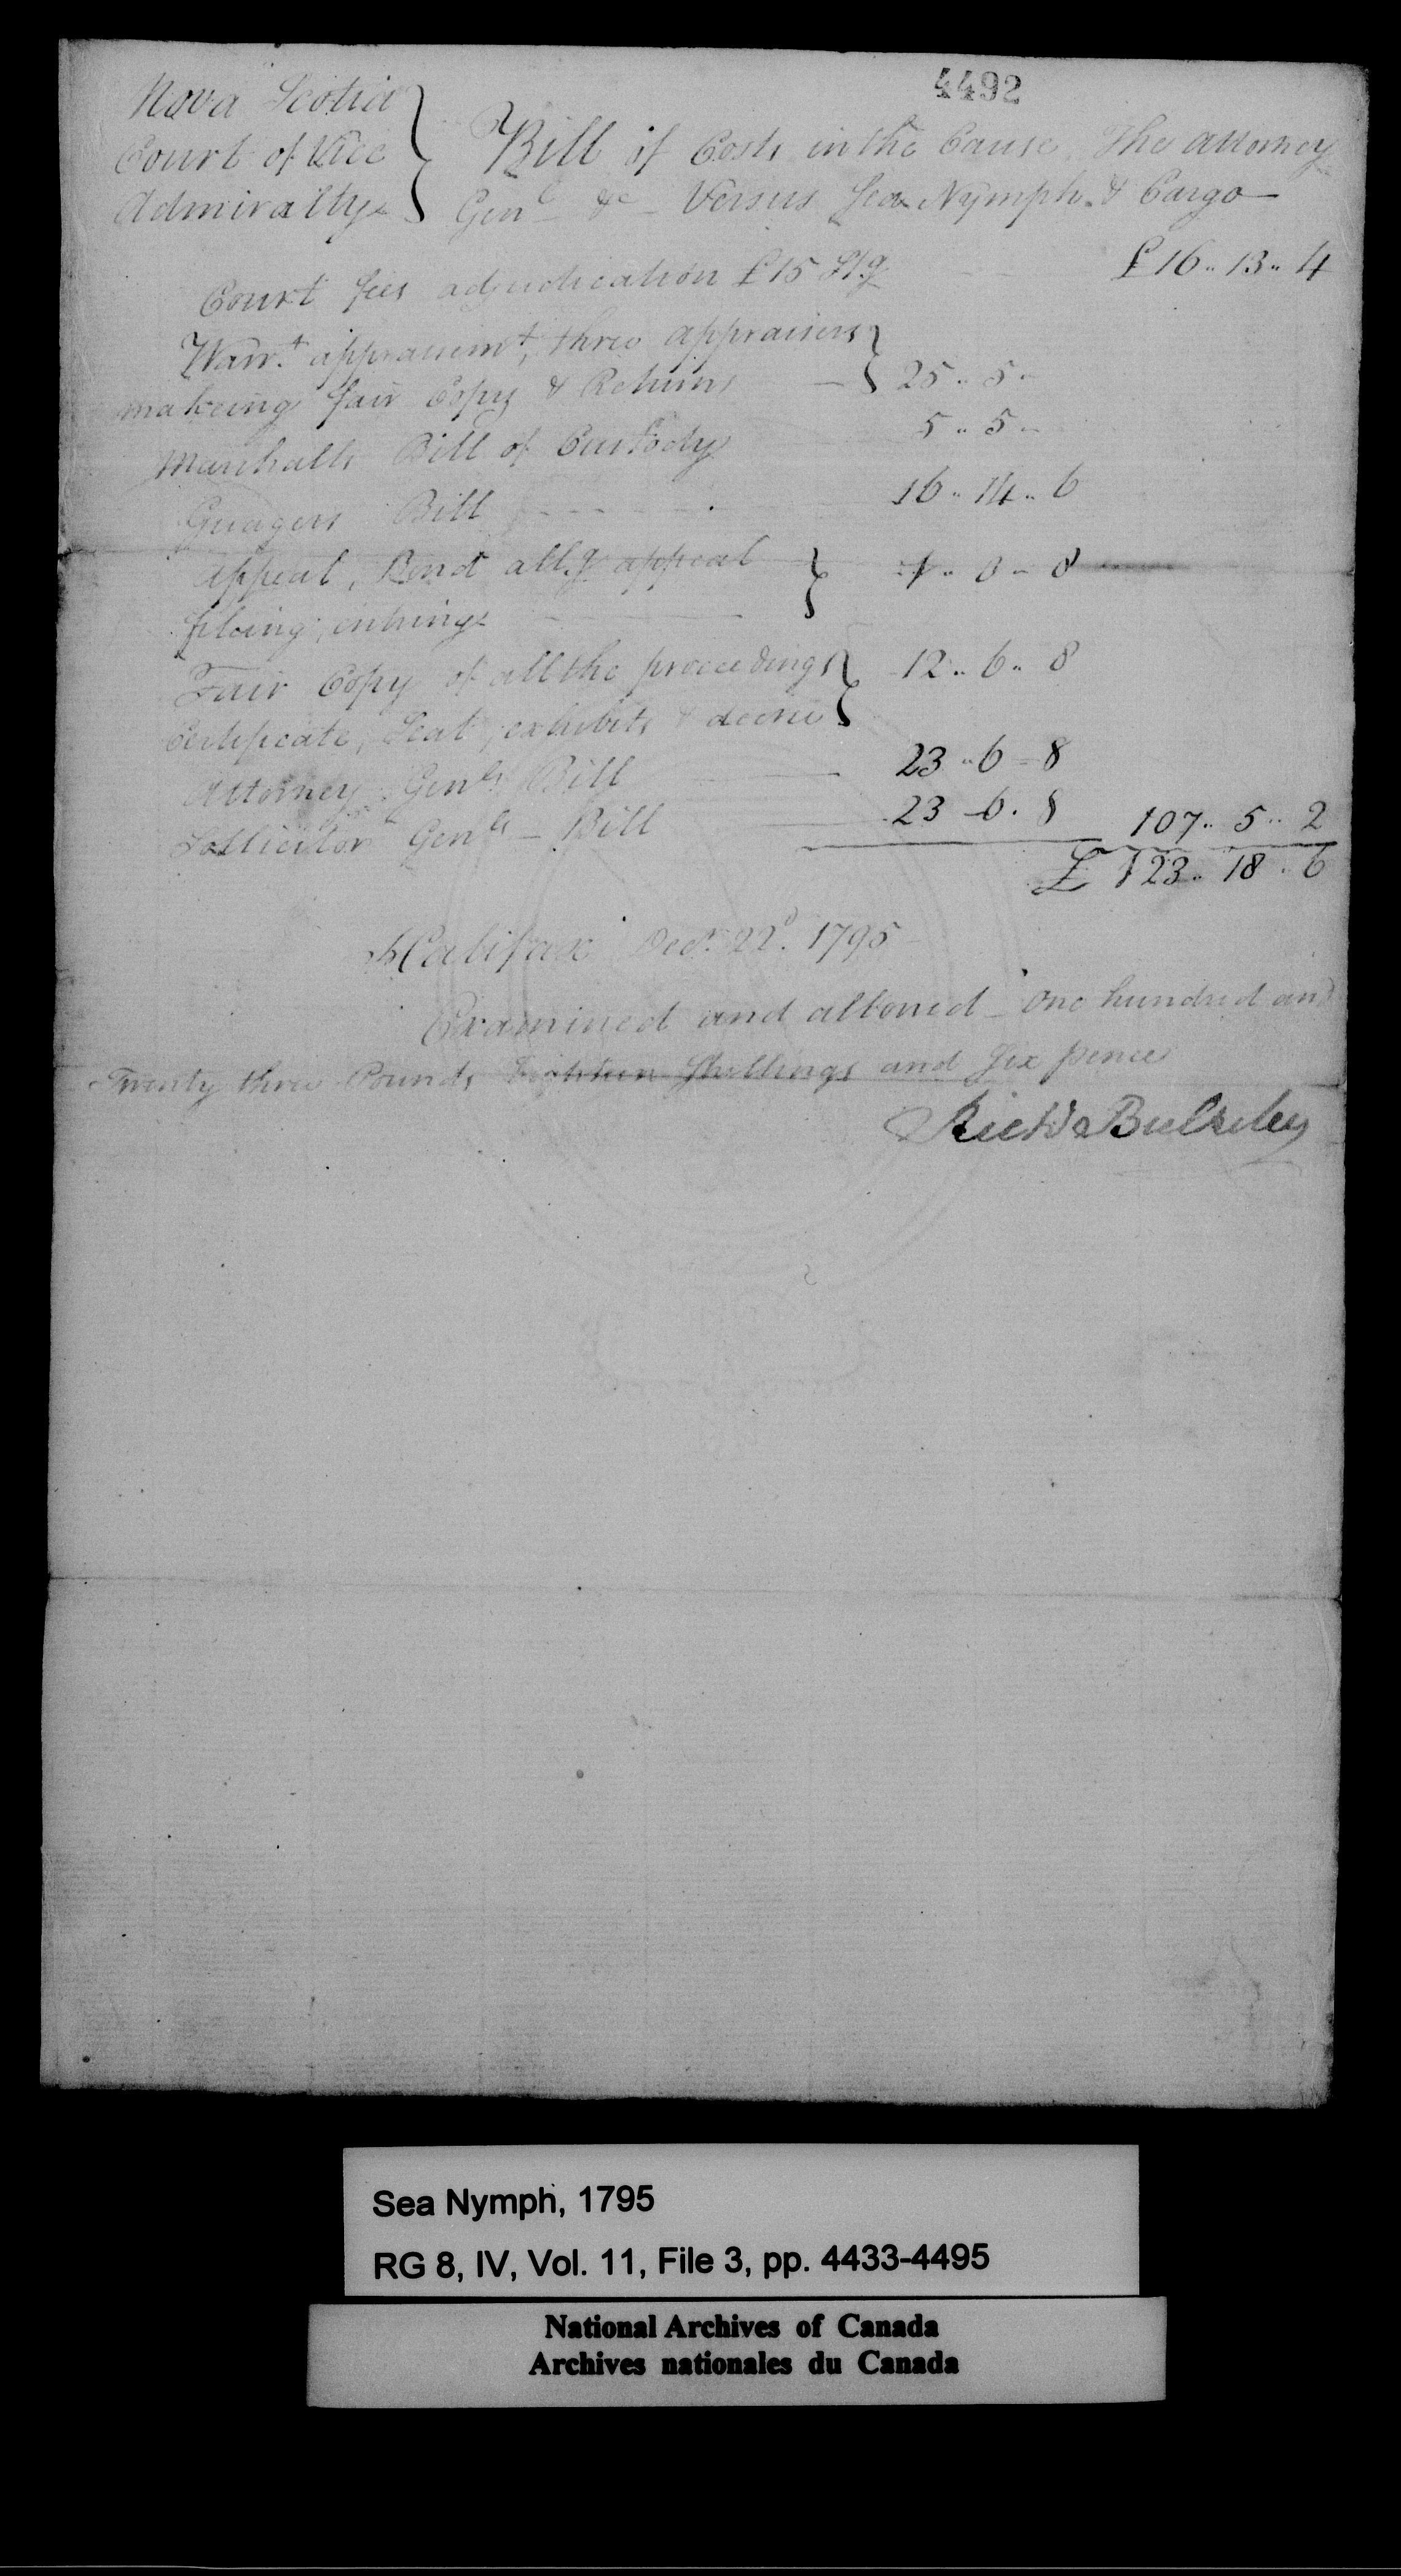 4492
Nova Scotia
Court of Vice
Admiralty
Bill of Costs in the Cause The Attorney
Genl &c Versus Sea Nymph & Cargo
Court fees adjudication £15 Stg £16.. 13.. 4
Warrt appraisemt, three appraisers
makeing fair Copy & Returns 25.. 5..
Marshalls Bill of Custody 5.. 5..
Guagers Bill 16.. 14.. 6
Appeal, Bond allg appeal 1.. 0.. 8
fileing, entring
Fair Copy of all the proceedings 12.. 6.. 8
Certificate, Seal, exhibits & decree
Attorney Genls Bill 23.. 6.. 8
Sollicitor Genls Bill 23.. 6.. 8 107.. 5.. 2
£ 123.. 18.. 6
Halifax Decr. 22d. 1795
Examined and allowed One hundred and
Twenty three Pounds Eighteen Shillings and Six pence
Richd Bulkeley
Sea Nymph, 1795
RG 8, IV, Vol. 11, File 3, pp. 4433-4495
National Archives of Canada
Archives nationales du Canada